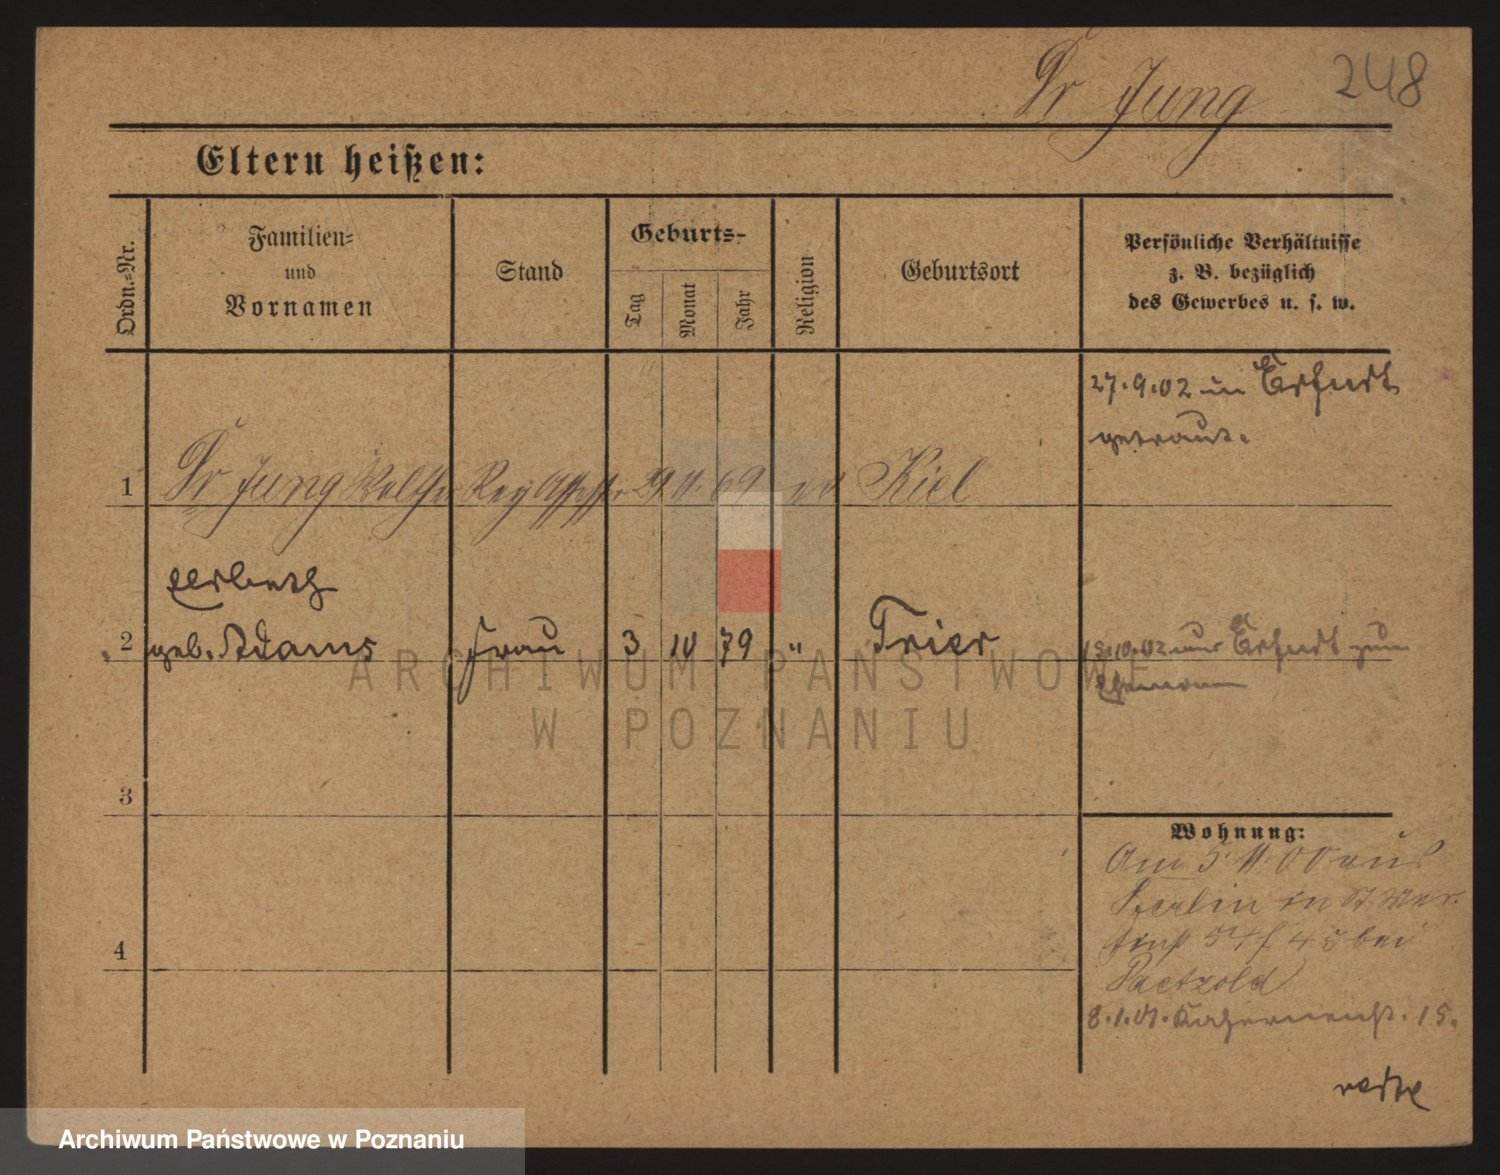 Dr Jung 248
Eltern heißen:
Ordn.-Nr.
Familien-
und
Vornamen
Stand
Geburts-
Tag
Monat
Jahr
Religion
Geburtsort
Persönliche Verhältnisse
z. B. bezüglich
des Gewerbes u. s. w.
27.9.02 in Erfurt
getraut.
1 Dr Jung Walther Reg Assessor 29 11. 69 ev Kiel
2 geb. Adams Frau 3 10 79 " Trier
15.10.02 aus Erfurt zum
Ehemann
3
4
Wohnung:
Am 5. 11. 00 aus
Berlin in St. Mar-
tinst 54/ 45 bei
Paetzold
8.1.01. 15.
ARCHIWUM PAŃSTWOWE
W POZNANIU
Archiwum Państwowe w Poznaniu